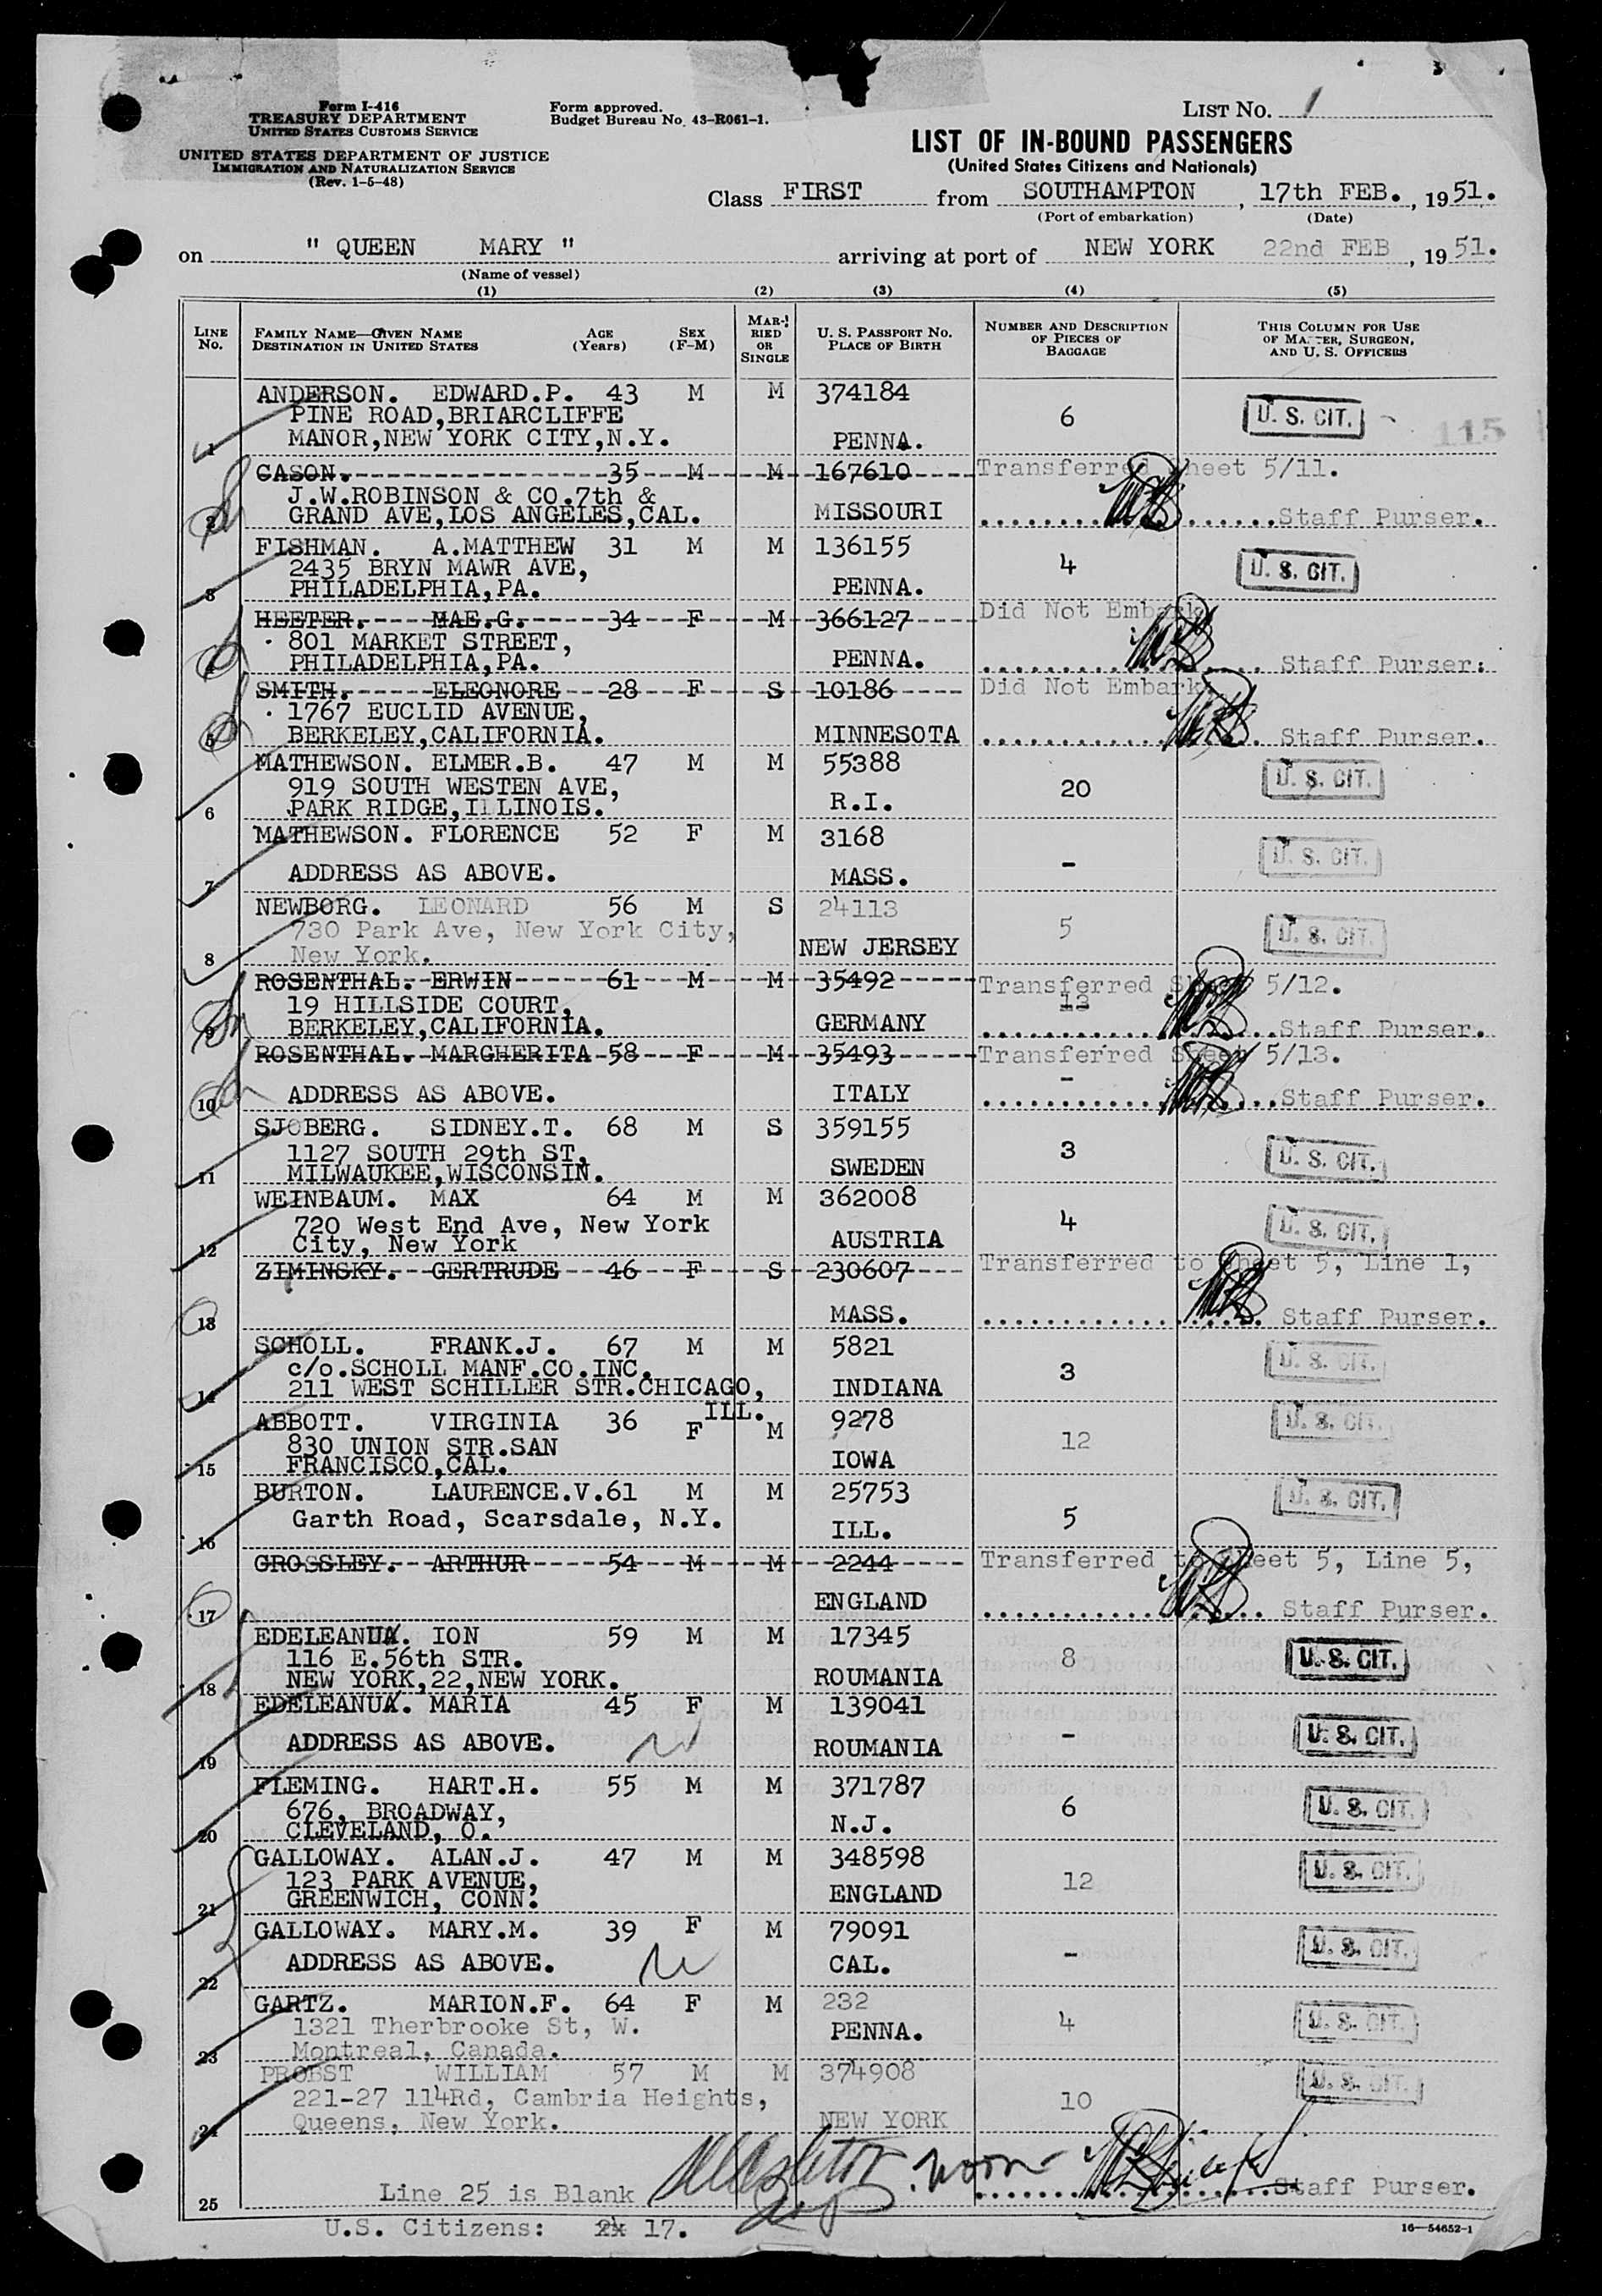 Form I-416
TREASURY DEPARTMENT
UNITED STATES CUSTOMS SERVICE
UNITED STATES DEPARTMENT OF JUSTICE
IMMIGRATION AND NATURALIZATION SERVICE
(Rev. 1-5-48)
Form approved.
Budget Bureau No. 43-R061-1.
LIST No. 1
LIST OF IN-BOUND PASSENGERS
(United States Citizens and Nationals)
Class FIRST from SOUTHAMPTON, 17th FEB., 1951.
(Port of embarkation) (Date)
on " QUEEN MARY " arriving at port of NEW YORK 22nd FEB, 1951.
(Name of vessel)
(1) (2) (3) (4) (5)
LINE No. FAMILY NAME—GIVEN NAME DESTINATION IN UNITED STATES AGE (Years) SEX (F-M) MARRIED OR SINGLE U. S. PASSPORT No. PLACE OF BIRTH NUMBER AND DESCRIPTION OF PIECES OF BAGGAGE THIS COLUMN FOR USE OF MASTER, SURGEON, AND U. S. OFFICERS
ANDERSON. EDWARD.P. 43 M M 374184
PINE ROAD,BRIARCLIFFE 6 U. S. CIT. 115
1 MANOR,NEW YORK CITY,N.Y. PENNA.
CASON. 35 M M 167610 Transferred Sheet 5/11.
J.W.ROBINSON & CO.7th &
2 GRAND AVE,LOS ANGELES,CAL. MISSOURI Staff Purser.
FISHMAN. A.MATTHEW 31 M M 136155
2435 BRYN MAWR AVE, 4 U. S. CIT.
3 PHILADELPHIA,PA. PENNA.
HEETER. MAE.G. 34 F M 366127 Did Not Embark
801 MARKET STREET,
4 PHILADELPHIA,PA. PENNA. Staff Purser.
SMITH. ELEONORE 28 F S 10186 Did Not Embark
1767 EUCLID AVENUE,
5 BERKELEY,CALIFORNIA. MINNESOTA Staff Purser.
MATHEWSON. ELMER.B. 47 M M 55388
919 SOUTH WESTEN AVE, 20 U. S. CIT.
6 PARK RIDGE,ILLINOIS. R.I.
MATHEWSON. FLORENCE 52 F M 3168
- U. S. CIT.
7 ADDRESS AS ABOVE. MASS.
NEWBORG. LEONARD 56 M S 24113
730 Park Ave, New York City, 5 U. S. CIT.
8 New York. NEW JERSEY
ROSENTHAL. ERWIN 61 M M 35492 Transferred Sheet 5/12.
19 HILLSIDE COURT, 13
9 BERKELEY,CALIFORNIA. GERMANY Staff Purser.
ROSENTHAL. MARGHERITA 58 F M 35493 Transferred Sheet 5/13.
-
10 ADDRESS AS ABOVE. ITALY Staff Purser.
SJOBERG. SIDNEY.T. 68 M S 359155
1127 SOUTH 29th ST, 3 U. S. CIT.
11 MILWAUKEE,WISCONSIN. SWEDEN
WEINBAUM. MAX 64 M M 362008
720 West End Ave, New York 4 U. S. CIT.
12 City, New York AUSTRIA
ZIMINSKY. GERTRUDE 46 F S 230607 Transferred to Sheet 5, Line 1,
13 MASS. Staff Purser.
SCHOLL. FRANK.J. 67 M M 5821
c/o.SCHOLL MANF.CO.INC. 3 U. S. CIT.
14 211 WEST SCHILLER STR.CHICAGO, INDIANA
ILL.
ABBOTT. VIRGINIA 36 F M 9278
830 UNION STR.SAN 12 U. S. CIT.
15 FRANCISCO,CAL. IOWA
BURTON. LAURENCE.V.61 M M 25753
Garth Road, Scarsdale, N.Y. 5 U. S. CIT.
16 ILL.
GROSSLEY. ARTHUR 54 M M 2244 Transferred to Sheet 5, Line 5,
17 ENGLAND Staff Purser.
EDELEANU. ION 59 M M 17345
116 E.56th STR. 8 U. S. CIT.
18 NEW YORK,22,NEW YORK. ROUMANIA
EDELEANU. MARIA 45 F M 139041
- U. S. CIT.
19 ADDRESS AS ABOVE. ROUMANIA
FLEMING. HART.H. 55 M M 371787
676, BROADWAY, 6 U. S. CIT.
20 CLEVELAND, O. N.J.
GALLOWAY. ALAN.J. 47 M M 348598
123 PARK AVENUE, 12 U. S. CIT.
21 GREENWICH, CONN. ENGLAND
GALLOWAY. MARY.M. 39 F M 79091
- U. S. CIT.
22 ADDRESS AS ABOVE. CAL.
GARTZ. MARION.F. 64 F M 232
1321 Therbrooke St, W. 4 U. S. CIT.
23 Montreal, Canada. PENNA.
PROBST WILLIAM 57 M M 374908
221-27 114Rd, Cambria Heights, 10 U. S. CIT.
24 Queens, New York. NEW YORK
25 Line 25 is Blank Staff Purser.
U.S. Citizens: 17.
16—54652-1